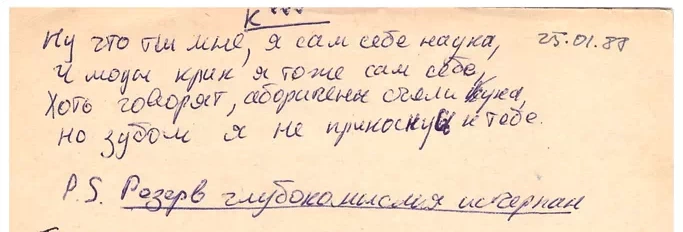 К ***
Ну что ты мне, я сам себе наука, 25.01.87
И моды крик я тоже сам себе,
Хоть говорят, аборигены съели Кука,
но зубом я не прикоснусь к тебе.
P.S. Резерв глубокомыслия исчерпан